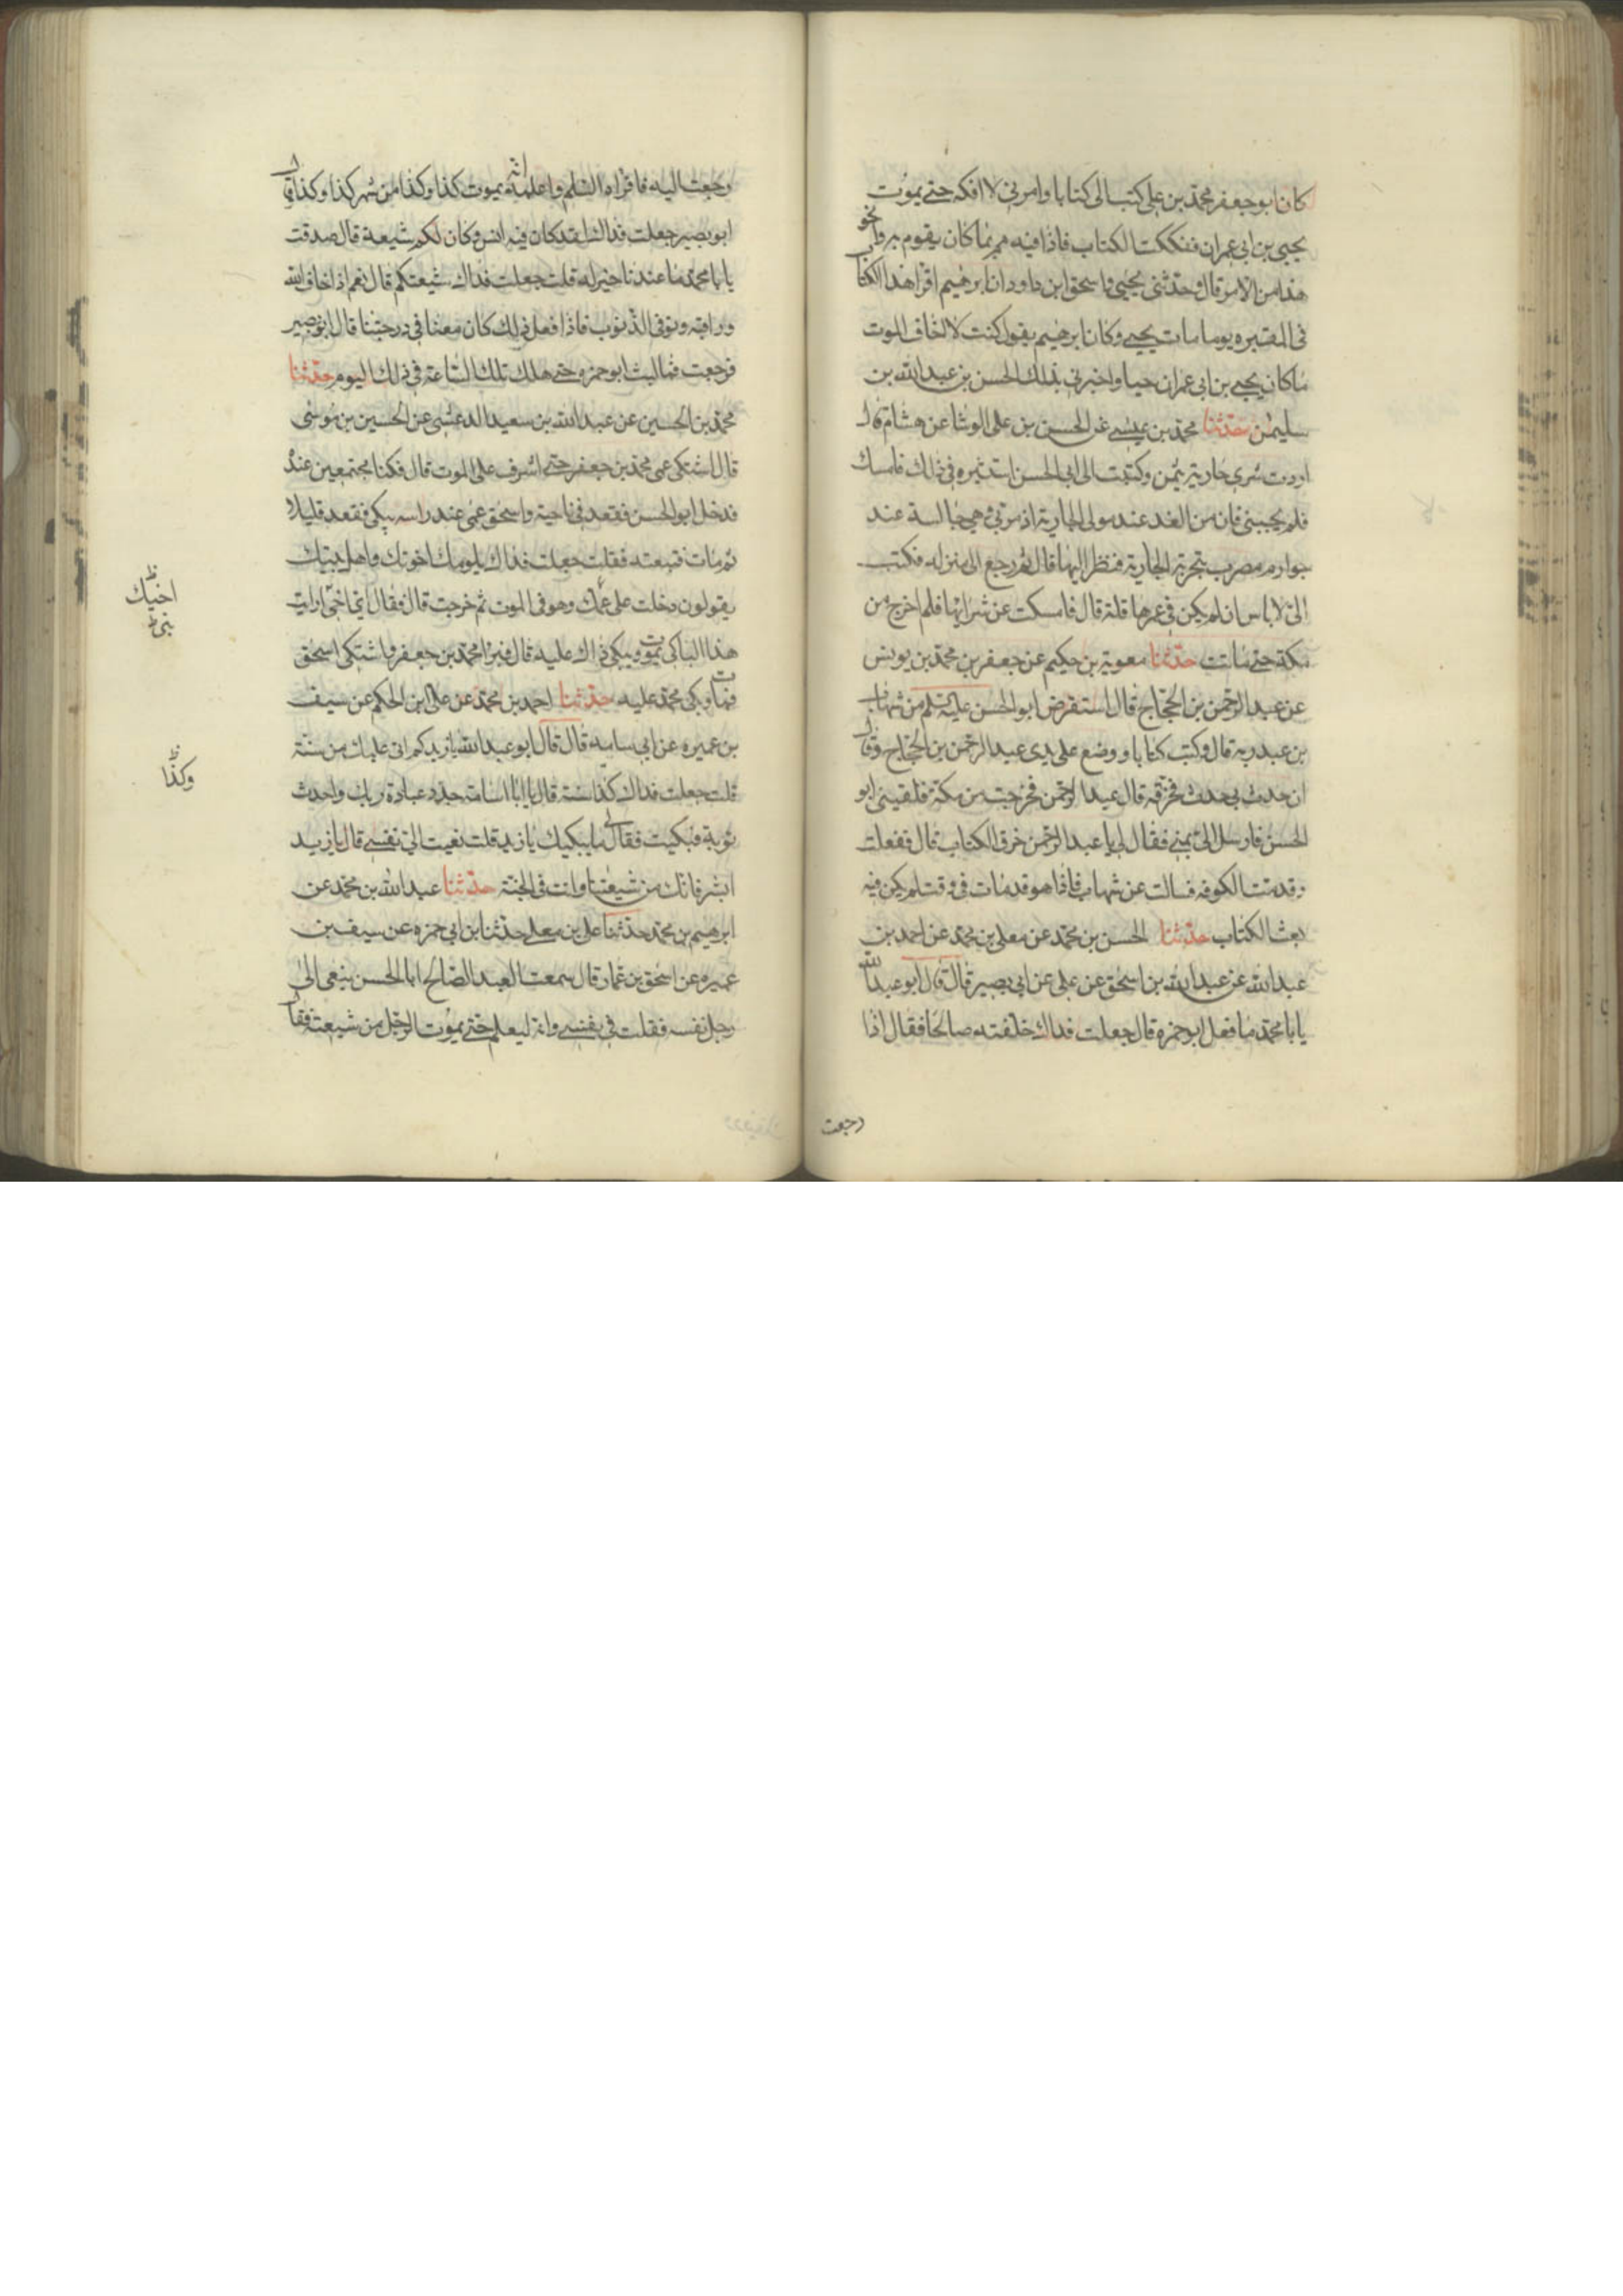 كان ابو جعفر محمد بن علي كتب الى كتابا وامرني لا افكه حتى يموت
يحيى بن ابي عمران ففككت الكتاب فاذا فيه قم بما كان يقوم به او نحو
هذا من الامر قال وحدثني يحيى واسحق ابن داود ان ابرهيم اقرا هذا الكتاب
في المقبره يوم مات يحيى وكان ابرهيم يقول كنت لا اخاف الموت
ما كان يحيى بن ابي عمران حيا واخبرني بذلك الحسن بن عبد الله بن
سليمن حدثنا محمد بن عيسى عن الحسن بن على الوشا عن هشام قال
اردت شرى جارية بثمن وكتبت الى ابي الحسن استشيره في ذلك فامسك
فلم يجبني فان من الغد عند مولى الجارية اذ مر بي وهي جالسة عند
جوار فنظر اليها قال ثم رجع الى منزله فكتب
الى لا باس ان لم يكن في عمرها قلة قال فامسكت عن شرايها فلم اخرج من
مكة حتى ماتت حدثنا معوية بن حكيم عن جعفر بن محمد بن يونس
عن عبد الرحمن بن الحجاج قال استقرض ابو الحسن عليه السلم من شهاب
بن عبد ربه قال وكتب كتابا ووضع على يدى عبد الرحمن بن الحجاج وقال
ان حدث بي حدث فخرقه قال عبد الرحمن فخرجت من مكة فلقيني ابو
الحسن فارسل الى بمنى فقال لي يا عبد الرحمن خرق الكتاب قال ففعلت
وقدمت الكوفه فسالت عن شهاب فاذا هو قد مات في وقت لم يكن فيه
بعث الكتاب حدثنا الحسن بن محمد عن معلى بن محمد عن احمد بن
عبد الله عن عبد الله بن اسحق عن علي عن ابي بصير قال قال ابو عبد الله
يابا محمد ما فعل ابو حمزه قال جعلت فداك خلفته صالحا فقال اذا
رجعت
رجعت اليه فاقراه السلم واعلمه انه يموت كذا وكذا من شهر كذا وكذا قال
ابو بصير جعلت فداك لقد كان فيه انس وكان لكم شيعة قال صدقت
يابا محمد ما عندنا خير له قلت جعلت فداك شيعتكم قال نعم اذا خاف الله
وراقبه وتوقى الذنوب فاذا فعل ذلك كان معنا في درجتنا قال ابو بصير
فرجعت فما لبث ابو حمزه حتى هلك تلك الساعة في ذلك اليوم حدثنا
محمد بن الحسين عن عبد الله بن سعيد الدغشى عن الحسين بن موسى
قال اشتكى عمى محمد بن جعفر حتى اشرف على الموت قال فكنا مجتمعين عنده
فدخل ابو الحسن فقعد في ناحية واسحق عمى عند راسه يبكى فقعد قليلا
ثم فتبعته فقلت جعلت فداك يلومك اخوتك واهل بيتك
يقولون دخلت على عمك وهو في الموت ثم خرجت قال فقال ارايت
هذا الباكى يموت ويبكى ذاك عليه قال فبرا محمد بن جعفر واشتكى اسحق
فمات وبكى محمد عليه حدثنا احمد بن محمد عن على ابن الحكم عن سيف
بن عميره عن ابي اسامه قال قال ابو عبد الله يا زيد كم اتى عليك من سنة
قلت جعلت فداك كذا سنة قال يا ابا اسامة جدد عبادة ربك واحدث
توبة فبكيت فقال لي ما يبكيك يا زيد قلت نعيت الى نفسى قال يا زيد
ابشر فانك من شيعتنا وانت في الجنة حدثنا عبد الله بن محمد عن
ابرهيم بن محمد حدثنا على بن معلى حدثنا ابن ابي حمزه عن سيف بن
عميره عن اسحق بن عمار قال سمعت العبد الصالح ابا الحسن ينعى الى
رجل نفسه فقلت في نفسى وانه ليعلم حتى يموت الرجل من شيعته فقال
وكذا